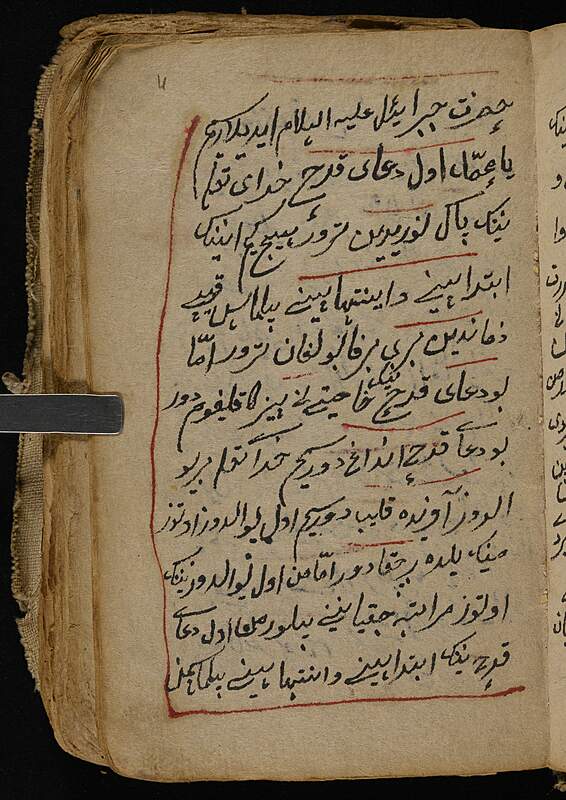 حضرت جبرائیل علیه السلام ایدیلار کیم
یا محمد اول دعای قدح خدای تعالی
نینک پاک نوریدین تورور هیچ کیم انینک
ابتداسینی و اینتهاسینی بیلماس
زماندین بری بر قالبولغان تورور اما
بو دعای قدح نینک خاصیتی نی بیزکا
بو دعای قدح انداغ دور کیم خدای تعالی
قلیب دور کیم اول یولدوز اوتوز
مینک یلده بر چقادور اما من اول یولدوز نینک
اوتوز مراتبه چقیانینی بیلورمن اما اول دعای
قدح نینک ابتداسینی و اینتهاسینی بیلماسمن